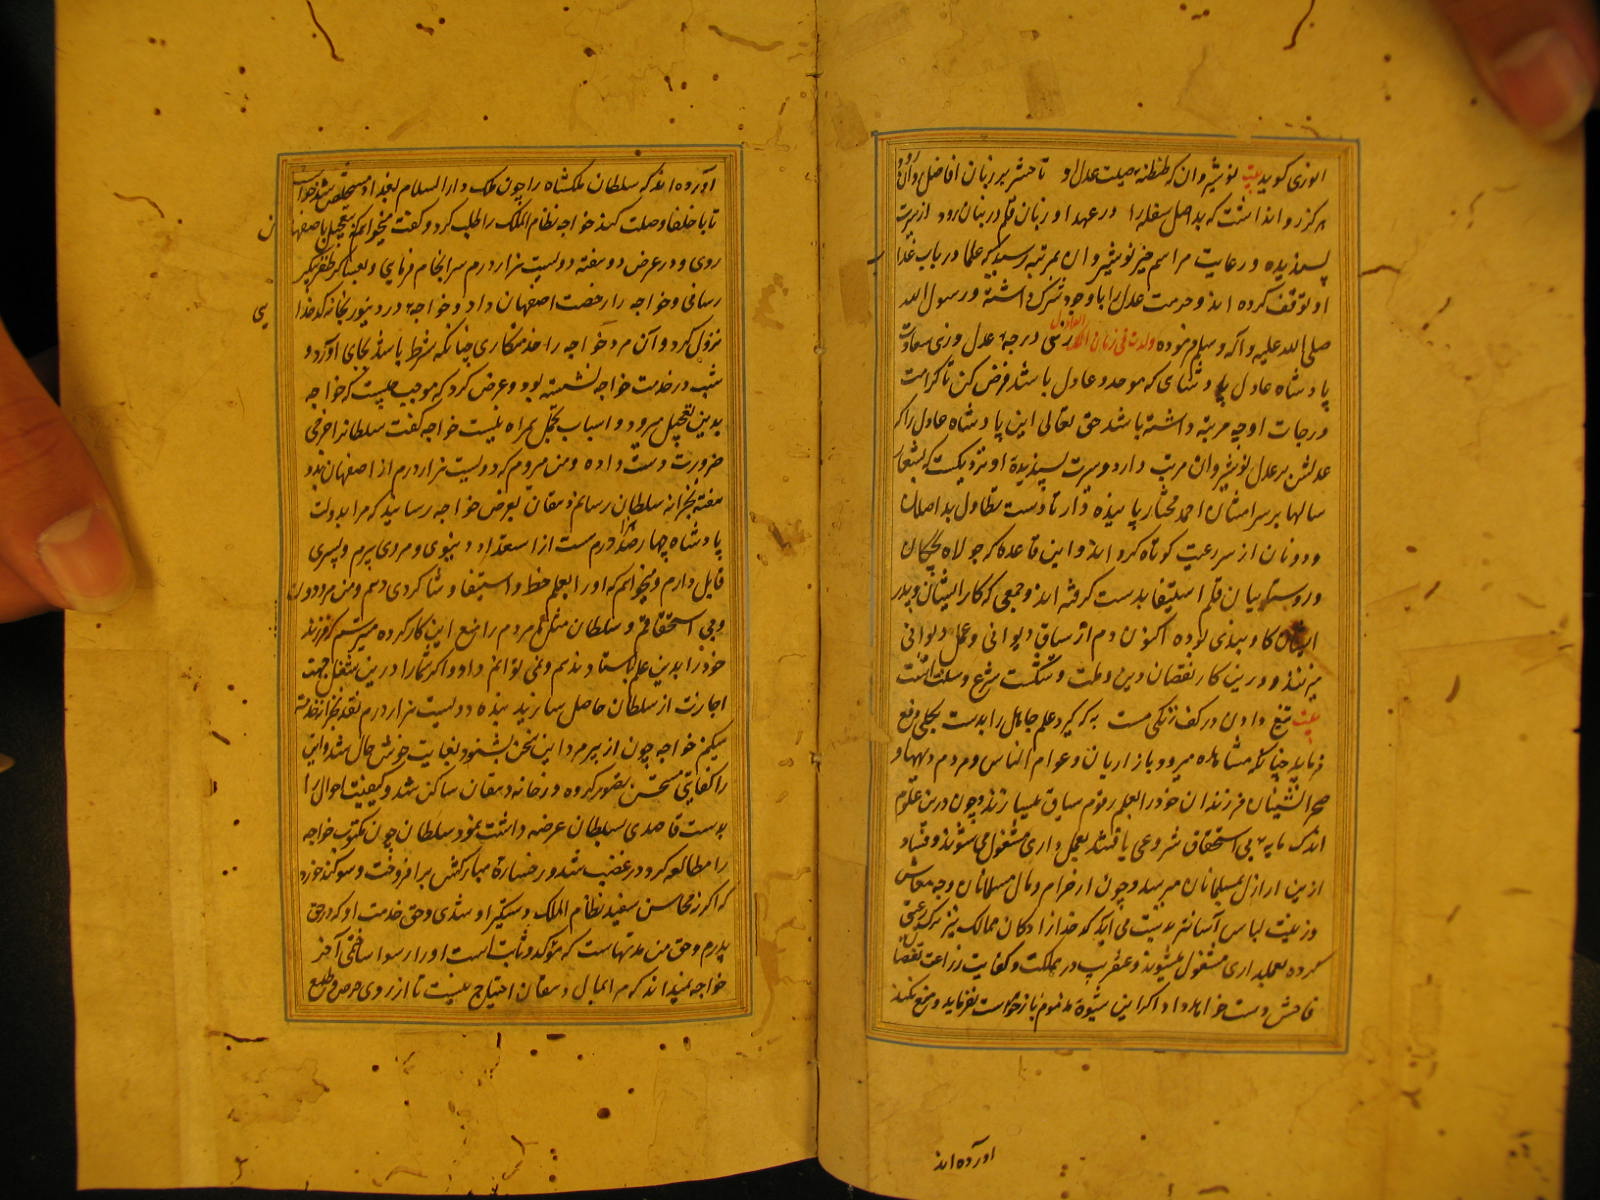 انوری گوید بیت نوشیروان که طنطنه صیت عدل او تا حشر بر زبان افاضل روان بود
هرگز روا نداشت که بد اصل سفله را در عهد او زبان قلم در بنان رود از سیرت
پسندیده و رعایت مراسم خیر نوشیروان بمرتبه رسید که علما در باب عذاب
او توقف کرده اند و حرمت عدل را با وجود شرک داشته و رسول الله
صلی الله علیه و آله وسلم فرموده ولدت فی زمان الملک العادل درجه عدل وزی سعادت
پادشاه عادل پادشاهی که موحد و عادل باشد فرض کن تا کرامت
درجات او چه مرتبه داشته باشد حق تعالی این پادشاه عادل را که
عدلش بر عدل نوشیروان مرتب دارد و سیرت پسندیده او نزدیکست که
سالها بر سر امتان احمد مختار پاینده دار تا دست تطاول بد اصلان
و دونان از سر رعیت کوتاه کرداند و این قاعده که جولاه بچکان
و روستاییان قلم استیفا بدست گرفته اند و جمعی که کار ایشان و پدر
ایشان گاو بندی بوده اکنون دم از سیاق دیوانی و عمل دیوانی
میزنند و درین کار نقصان دین و ملت و شکست شرع و سنت است
بیت تیغ دادن در کف زنگی مست به که گیرد علم جاهل را بدست بجلی رفع
فرماید چنانکه مشاهده میرود بازاریان و عوام الناس و مردم دیهها و
صحرانشینان فرزندان خود را بعلم رقوم سیاق میسپارند و چون درین علوم
اندک مایه بی استحقاق شروعی یافتند بعمل داری مشغول می شوند و فساد
ازین اراذل بمسلمانان میرسد و چون از حرام و مال مسلمانان وجه معاش
و زینت لباس آسانتر بدست می آید که خدازادکان ممالک نیز ترک رعیتی
کرده بعملداری مشغول میشوند و عنقریب در مملکت و کفایت زراعت نقصان
فاحش دست خواهد داد اگر این شیوه مذموم بازخواست نفرماید و منع نکند
آورده اند
آورده اند که سلطان ملکشاه را چون ملک دارالسلام بغداد مستخلص شد خواست
تا با خلفا وصلت کند خواجه نظام الملک را طلب کرد و گفت میخواهم که بتعجیل باصفهان
روی و در عرض دو هفته دویست هزار درم سرانجام فرمایی و بعساکر ظفر پیکر
رسانی و خواجه را رخصت اصفهان داد و خواجه در دینور بخانه کدخدایی
نزول کرد و آن مرد خواجه را خدمتکاری چنانکه شرط باشد بجای آورد و
شب در خدمت خواجه نشسته بود و عرض کرد که موجب چیست که خواجه
بدین تعجیل میرود و اسباب تجمل همراه نیست خواجه گفت سلطانرا خرجی
ضرورت دست داده و من میروم که دویست هزار درم از اصفهان بدو
هفته بخزانه سلطان رسانم دهقان بعرض خواجه رسانید که مرا بدولت
پادشاه چهار صد هزار درم هست از استعداد دنیوی و مردی پیرم و پسری
قابل دارم و میخواهم که او را بعلم خط و استیفا و شاگردی دهم و من مرد دون
و بی استحقاقم و سلطان مثل مردم را منع این کار کرده میترسم که فرزند
خود را بدین علم باستاد ندهم و نمی توانم داد و اگر شما را درین شغل جهت
اجازت از سلطان حاصل سازید بنده دویست هزار درم نقد بخزانه خدمت
میکنم خواجه چون از پیرمرد این سخن بشنود بغایت خوش حال شد و این
را کفایتی مستحسن تصور کرده در خانه دهقان ساکن شد و کیفیت احوال را
بدست قاصدی بسلطان عرضه داشت نمود سلطان چون مکتوب خواجه
را مطالعه کرد در غضب شد و رخساره مبارکش برافروخت و سوگند خورد
که اگر نه محاسن سفید نظام الملک دستگیر او شدی و حق خدمت او که در حق
پدرم و حق من مدتهاست که مؤکد و ثابت است او را رسوا ساختمی آخر
خواجه نمیداند که مرا بمال دهقان احتیاج نیست تا از روی حرص و طمع